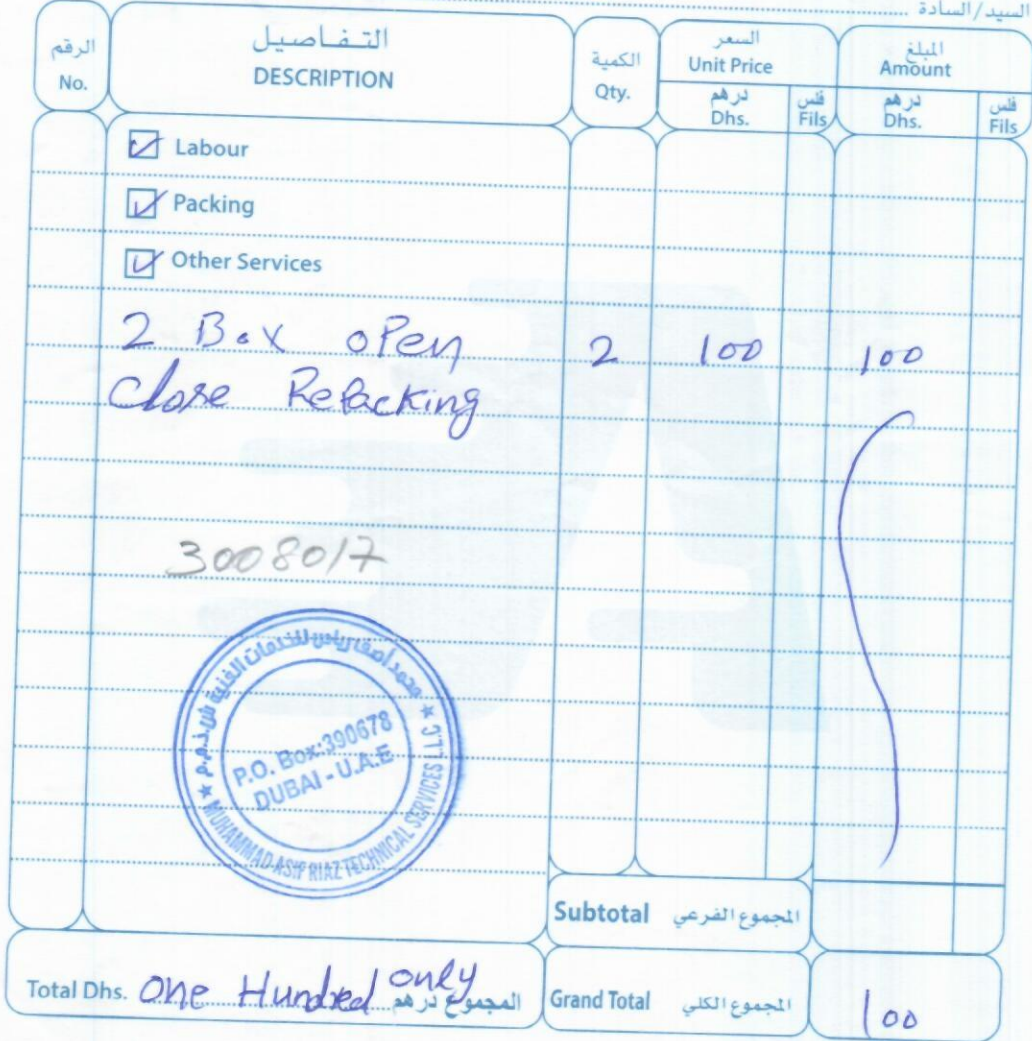 السيد/السادة
الرقم
No.
التفاصيل
DESCRIPTION
الكمية
Qty.
السعر
Unit Price
درهم
Dhs.
فلس
Fils
المبلغ
Amount
درهم
Dhs.
فلس
Fils
Labour
Packing
Other Services
2 Box open 2 100 100
Close Repacking
3008017
محمد آصف رياض للخدمات الفنية ش.ذ.م.م
P.O. Box:390678
DUBAI - U.A.E
MUHAMMAD ASIF RIAZ TECHNICAL SERVICES L.L.C
Subtotal المجموع الفرعي
Total Dhs. One Hundred only المجموع درهم
Grand Total المجموع الكلي 100